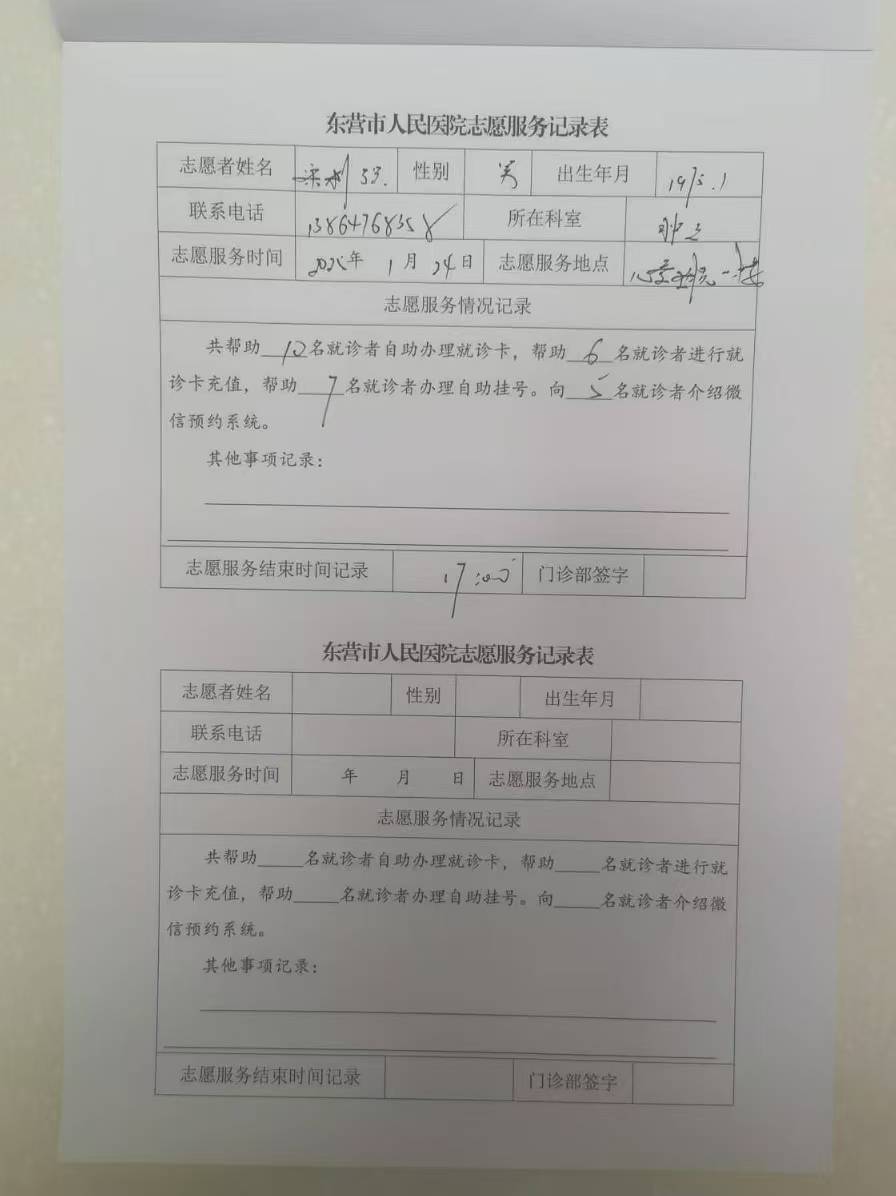 东营市人民医院志愿服务记录表
志愿者姓名 性别 出生年月 1975.1
联系电话 13864768358 所在科室
志愿服务时间 年 1月24日 志愿服务地点
志愿服务情况记录
共帮助 12 名就诊者自助办理就诊卡，帮助 6 名就诊者进行就
诊卡充值，帮助 7 名就诊者办理自助挂号。向 5 名就诊者介绍微
信预约系统。
其他事项记录：
志愿服务结束时间记录 17:00 门诊部签字
东营市人民医院志愿服务记录表
志愿者姓名 性别 出生年月
联系电话 所在科室
志愿服务时间 年 月 日 志愿服务地点
志愿服务情况记录
共帮助_____名就诊者自助办理就诊卡，帮助_____名就诊者进行就
诊卡充值，帮助_____名就诊者办理自助挂号。向_____名就诊者介绍微
信预约系统。
其他事项记录：
志愿服务结束时间记录 门诊部签字